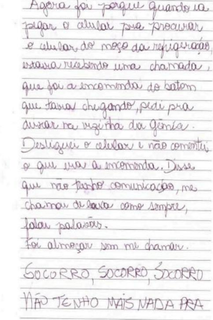 Agora foi porque quando ia
pegar o celular pra procurar
o celular do moço da refrigeração,
estava recebendo uma chamada,
que foi a encomenda do batom
que tava chegando, pedi pra
deixar na vizinha da
Desliguei o celular e não comentei
o que era a encomenda. Disse
que não tenho comunicação, me
chamou de como sempre,
falou palavões.
Foi almoçar sem me chamar.
SOCORRO, SOCORRO, SOCORRO
NÃO TENHO MAIS NADA PRA